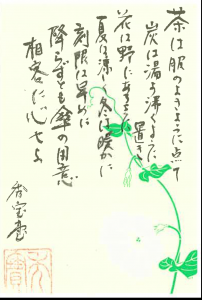 茶は服のよきように点て
炭は湯の沸くように
置き
花は野にあるように
夏は涼しく冬は暖かに
刻限は早めに
降らずとも傘の用意
相客に心せよ